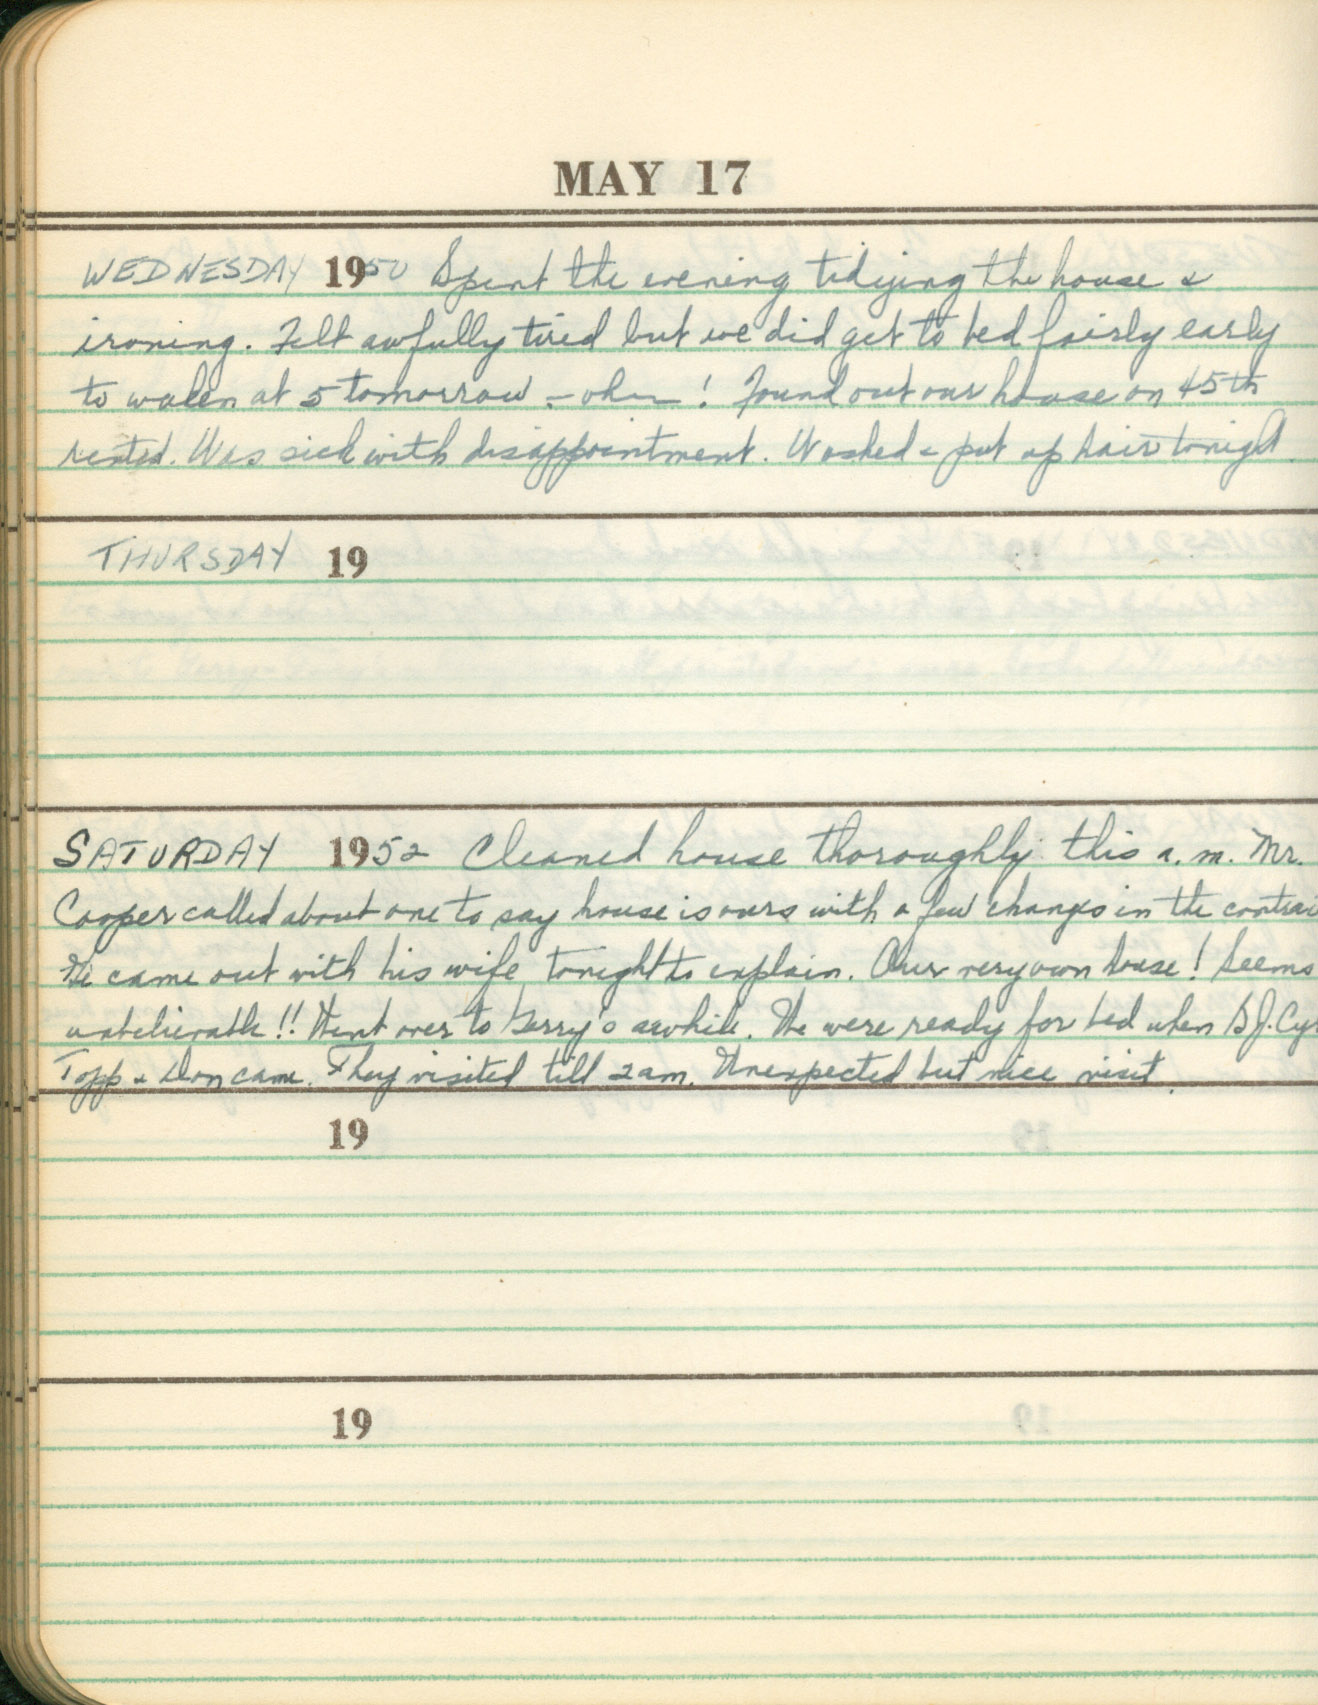 MAY 17
WEDNESDAY 1950 Spent the evening tidying the house &
ironing. Felt awfully tired but we did get to bed fairly early
to waken at 5 tomorrow - oh ! Found out our house on 45th
rented. Was sick with disappointment. Washed & put up hair tonight.
THURSDAY 19
SATURDAY 1952 Cleaned house thoroughly this a.m. Mr.
Cooper called about one to say house is ours with a few changes in the
He came out with his wife tonight to explain. Our very own house! Seems
unbelievable!! Went over to Gerry's awhile. We were ready for bed when
Topp & Don came. They visited till 2 am. Unexpected but nice visit.
19
19